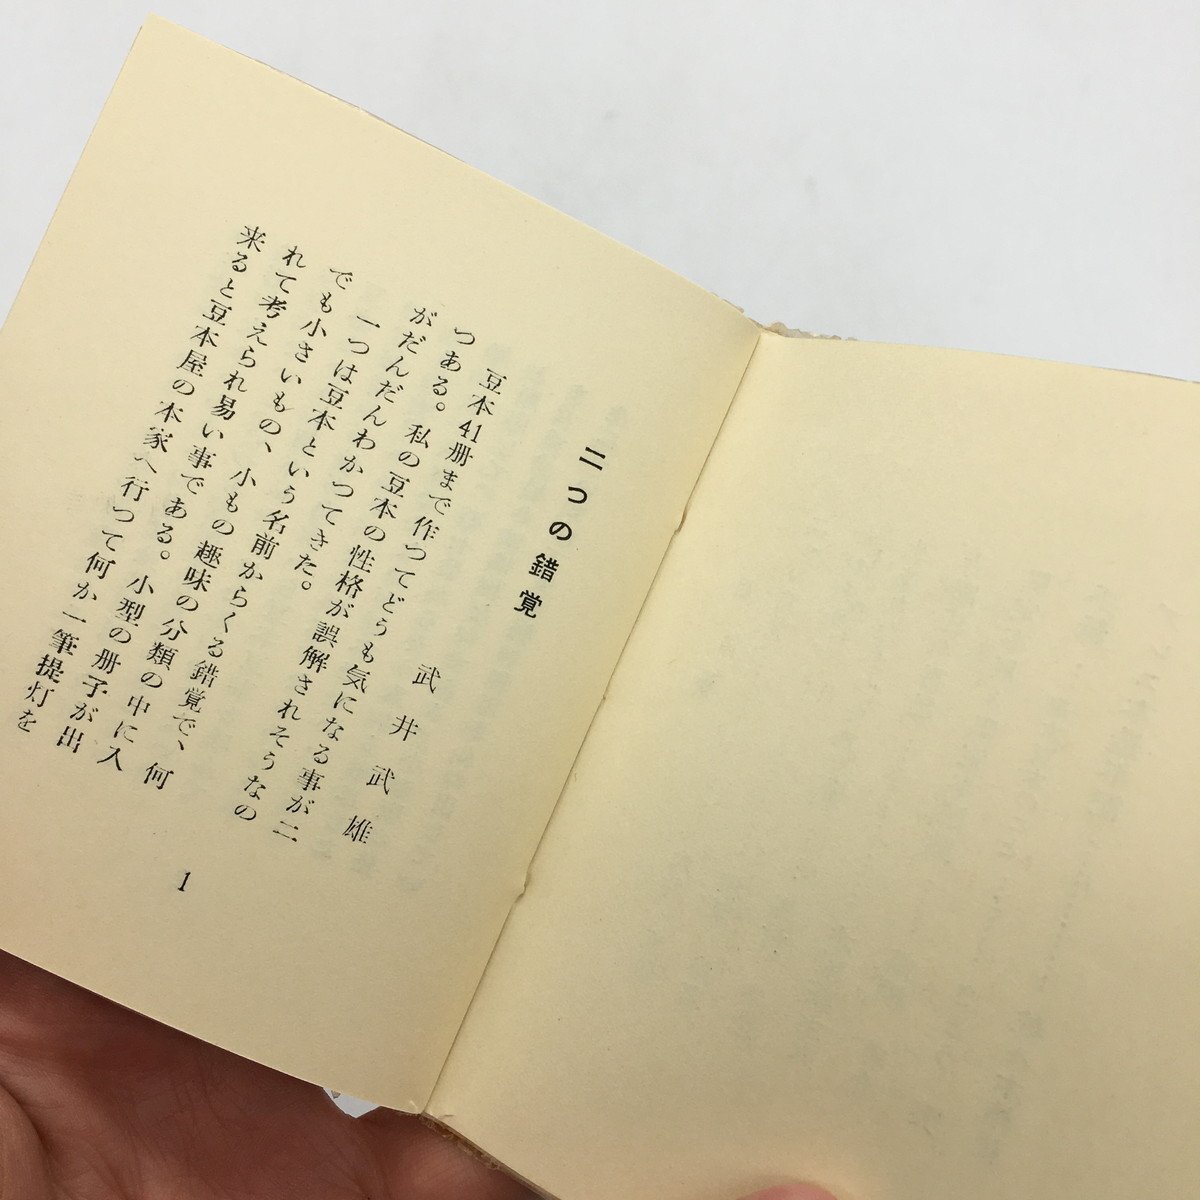 二つの錯覚
武井武雄
豆本41册まで作つてどうも気になる事が二
つある。私の豆本の性格が誤解されそうなの
がだんだんわかつてきた。
一つは豆本という名前からくる錯覚で、何
でも小さいもの、小もの趣味の分類の中に入
れて考えられ易い事である。小型の册子が出
来ると豆本屋の本家へ行つて何か一筆提灯を
1